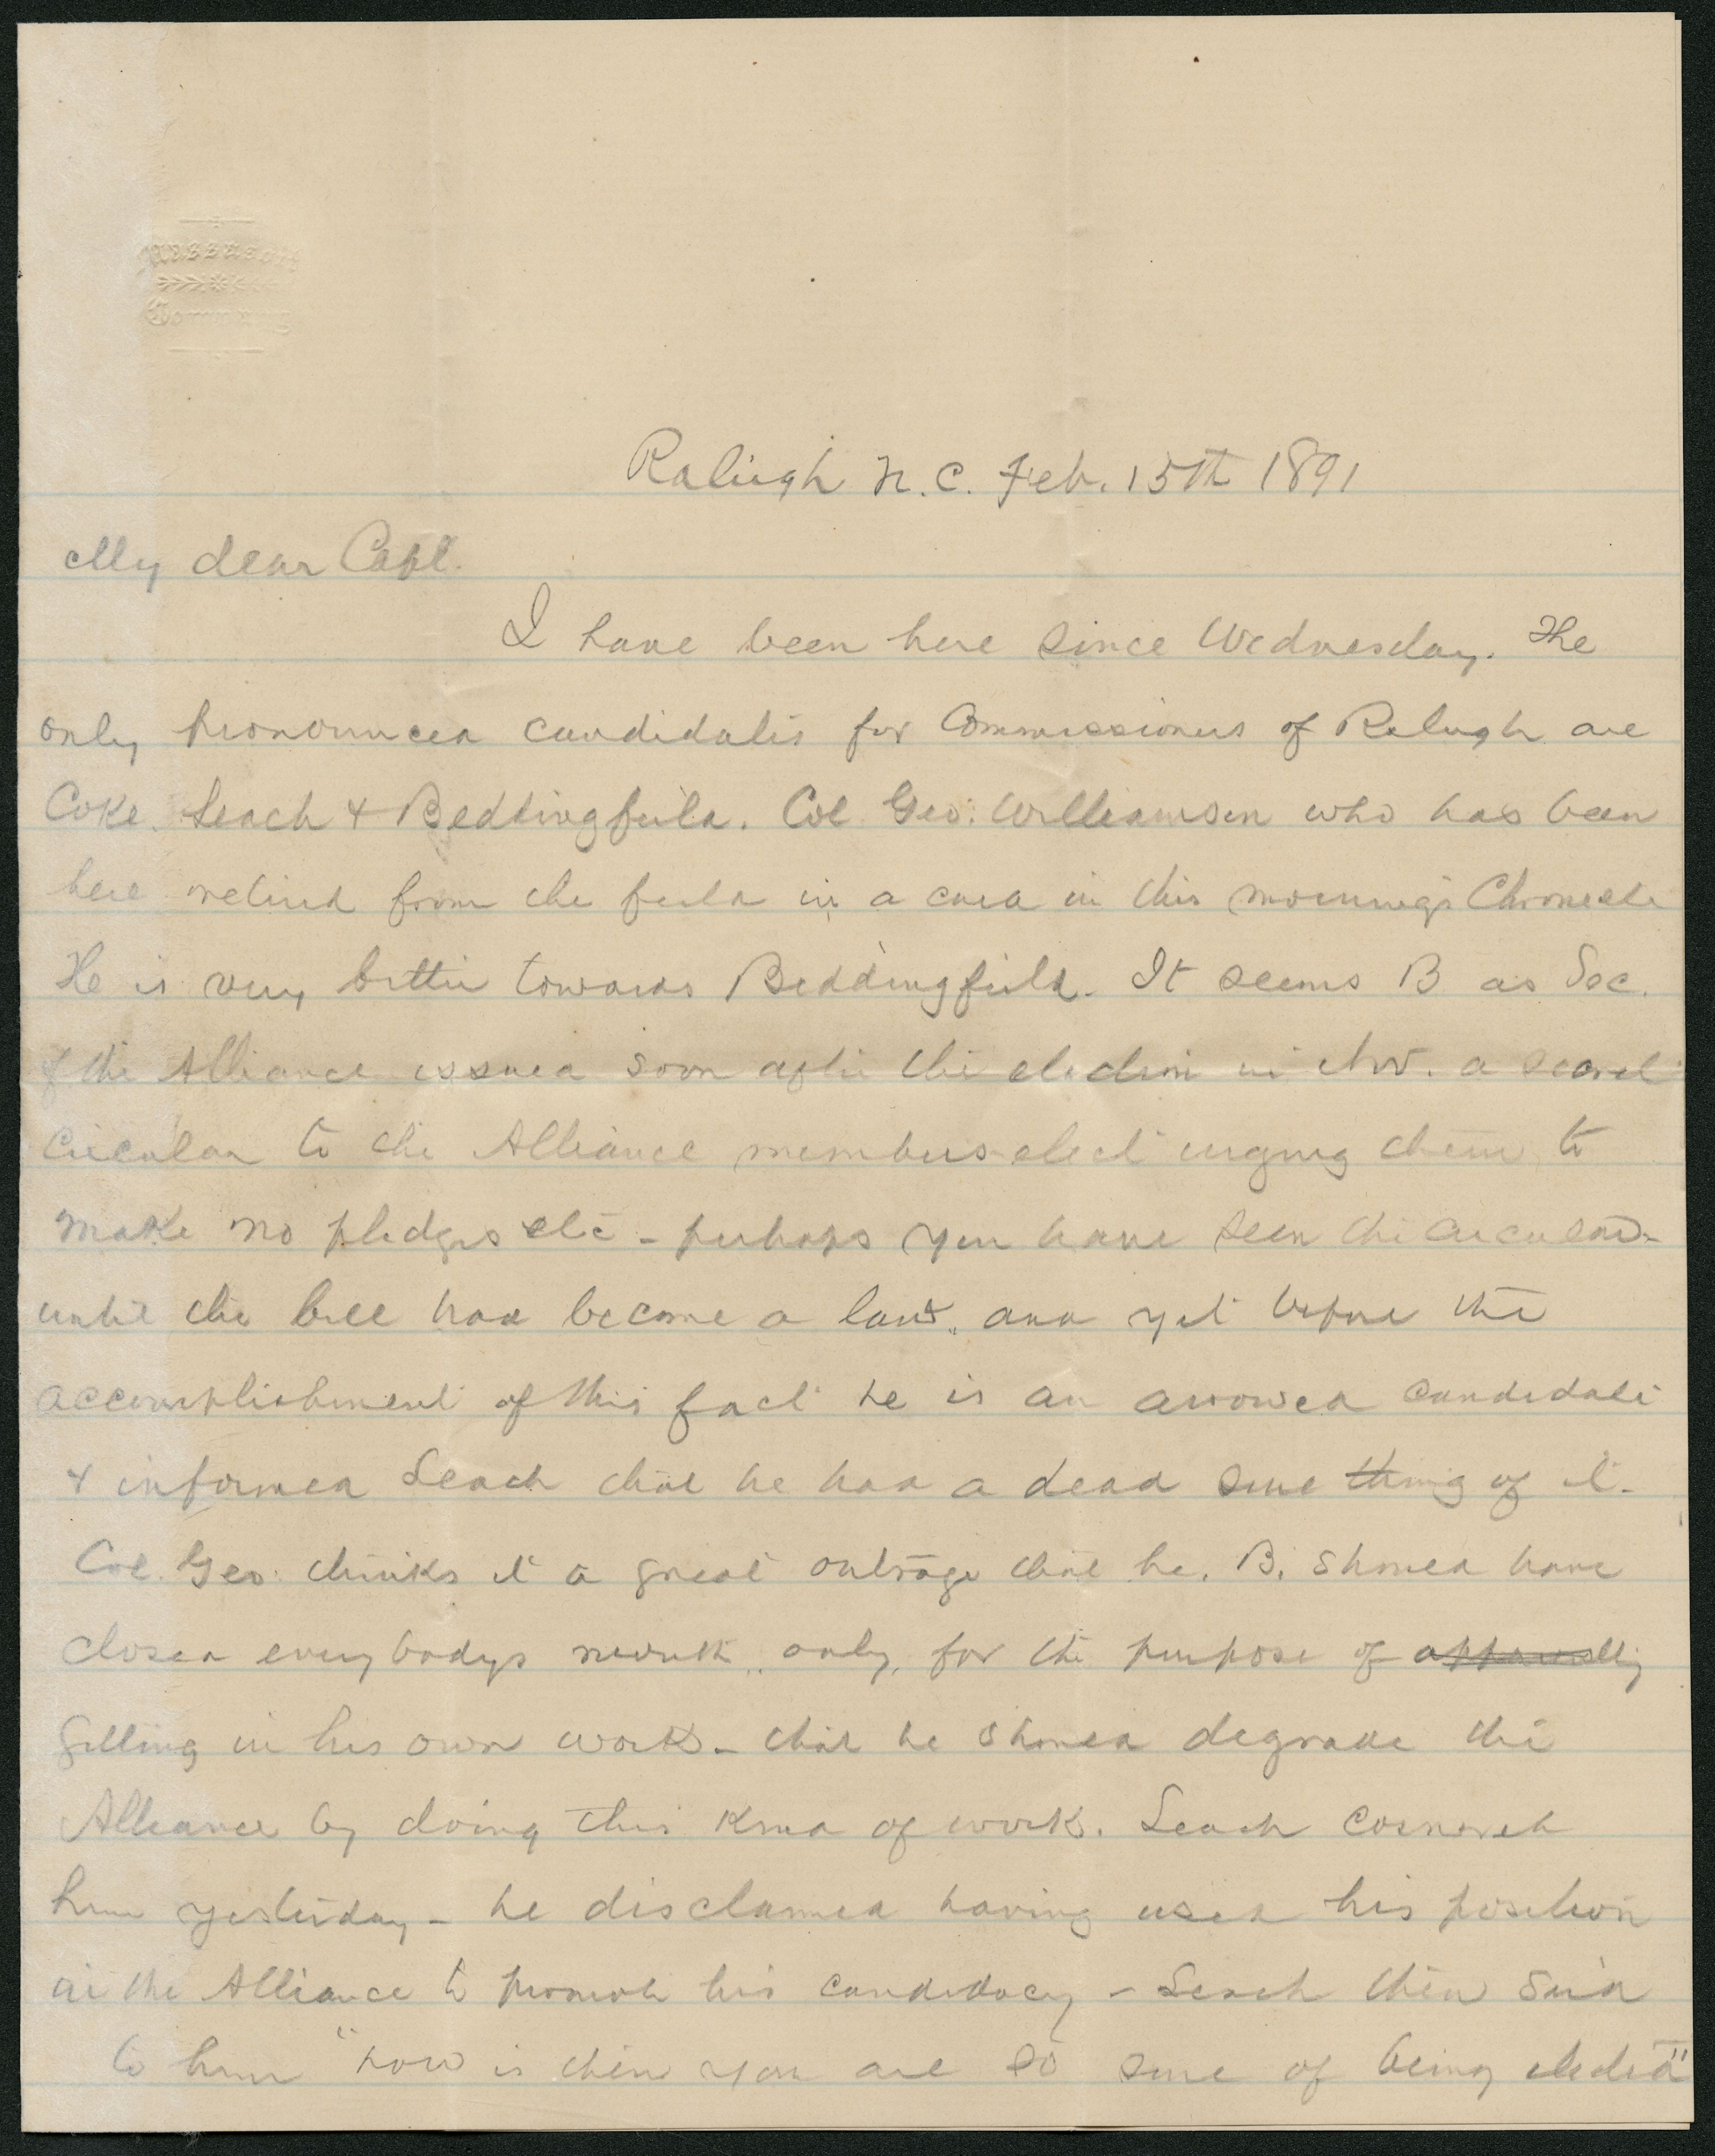 Raleigh N.C. Feb. 15th 1891
My dear Capt.
I have been here since Wednesday. The
only pronounced candidates for Commissioners of Raleigh are
Coke, Leach & Beddingfield. Col. Geo: Williamson who has been
here retired from the field in a card in this morning's Chronicle
He is very bitter towards Beddingfield. It seems B as Sec.
of the Alliance issued soon after the election in Nov. a secret
circular to the Alliance members-elect urging them to
make no pledges etc - perhaps you have seen the circular -
until the bill had become a law, and yet before the
accomplishment of this fact he is an avowed candidate
& informed Leach that he had a dead sure thing of it.
Col. Geo: thinks it a great outrage that he, B, should have
closed everybodys mouth, only, for the purpose of apparently
getting in his own work - that he should degrade the
Alliance by doing this kind of work. Leach cornered
him yesterday - he disclaimed having used his position
in the Alliance to promote his candidacy - Leach then said
to him "how is then you are so sure of being elected"